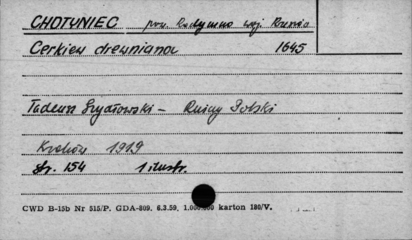 CHOTYNIEC pow. Radymno woj. Rzesów
Cerkiew drewniana 1645
Tadeusz Szydłowski - Ruiny Polski
Kraków 1919
str. 154 1 ilustr.
CWD B-15b Nr 515/P. GDA-809. 6.3.59. 1.000.000 karton 180/V.